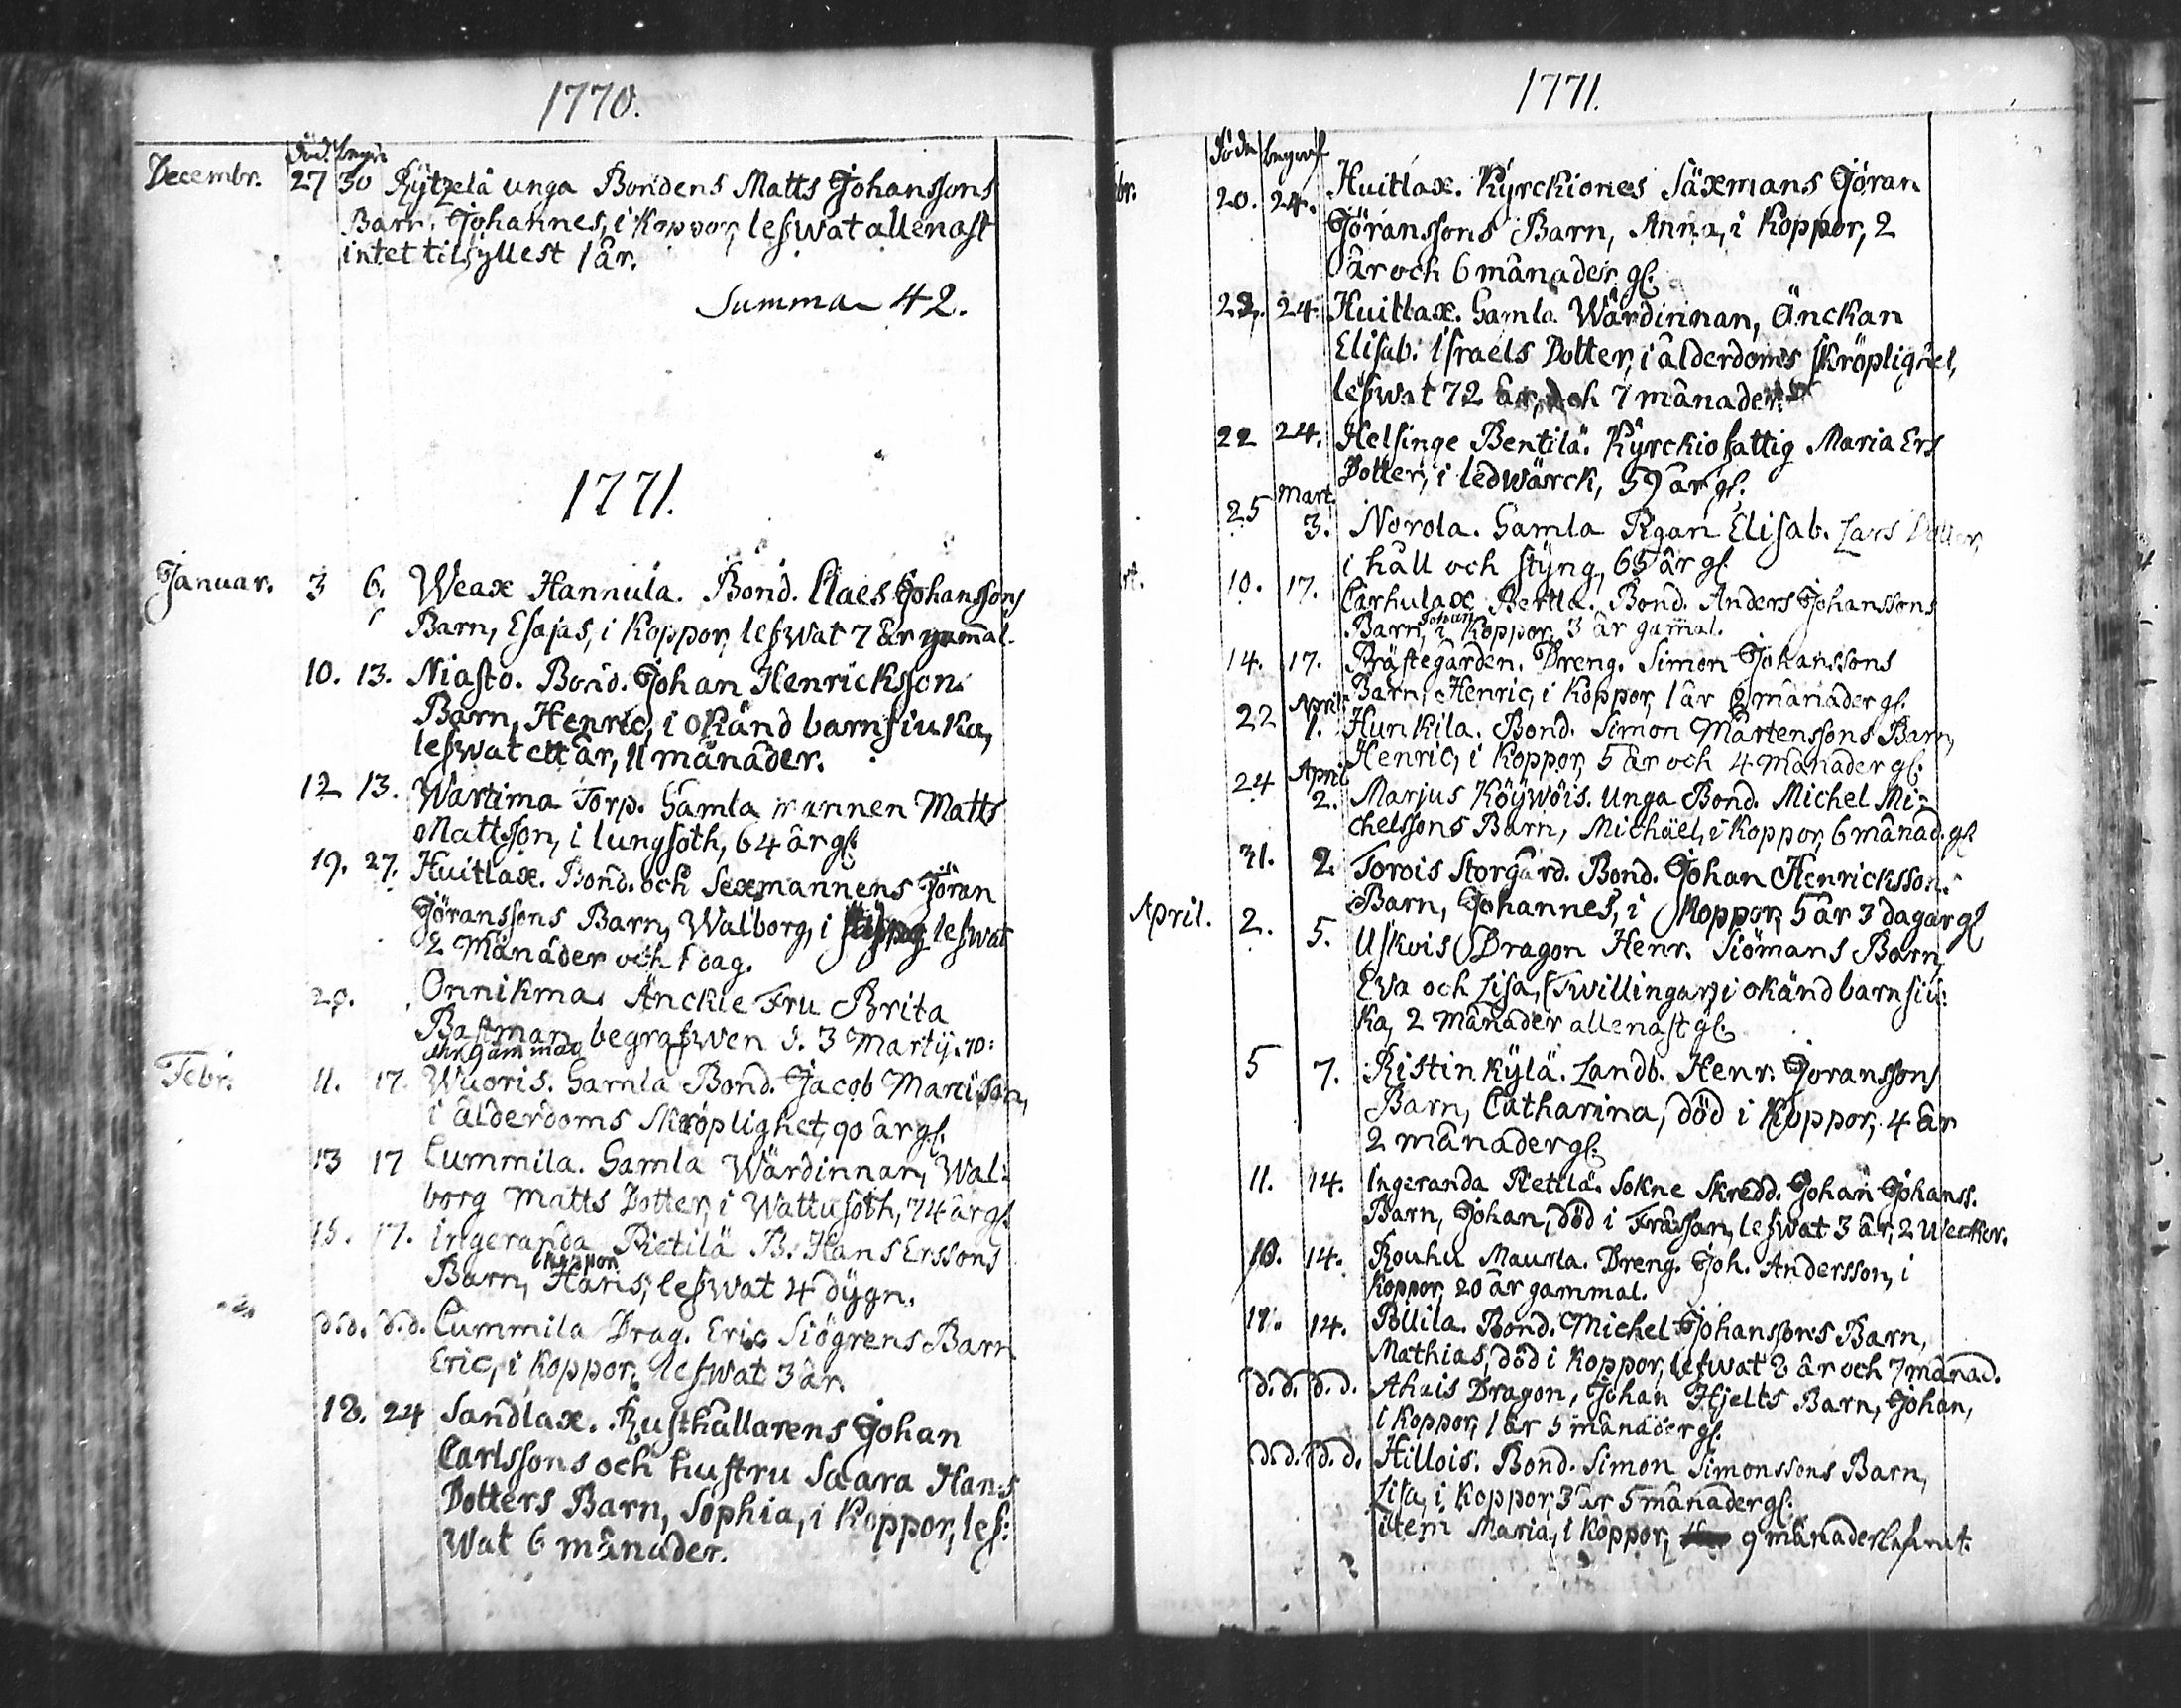 1770.
död. begr.
Decembr. 27 30 Rytzelä unga Bondens Matts Johanssons
Barn, Johannes, i Koppor, lefwat allenast
intet tilfyllest 1 år.
Summa 42.
1771.
Januar. 3 6. Weax Hannula. Bond. Claes Johanssons
Barn, Esajas, i Koppor, lefwat 7 år gammal.
10. 13. Niasto. Bond. Johan Henricksson.
Barn, Henric, i okänd barnsiuka,
lefwat ett år, 11 månader.
12 13. Wartima Torp. Gamla mannen Matts
Mattsson, i lungsoth, 64 år gl.
19. 27. Huitlax. Bond. och Sexmannens Jöran
Göranssons Barn, Walborg, i lefwat
2 Månader och 1 dag.
20. Onnikmaa Änckie Fru Brita
begrafwen d. 3 Martij. 70:
åhr gammal
Febr. 11. 17. Wuoris. Gamla Bond. Jacob
i ålderdoms skröplighet, 90 år gl.
13 17 Cummila. Gamla Wärdinnan, Wal:
borg Matts Dotter, i Wattusoth, 74 år gl.
15. 17. Ingeranda Pietilä B. Hans Erssons
i koppor
Barn, Hans, lefwat 4 dygn.
d.d. d.d. Cummila Drag. Eric Siögrens Barn
Eric, i Koppor, lefwat 3 år.
18. 24 Sandlax. Rusthållarens Johan
Carlssons och hustru Saara Hans
Dotters Barn, Sophia, i Koppor, lef:
wat 6 månader.
1771.
döde begraf
br. 20. 24. Huitlax. Kyrckiones Säxmans Jöran
Jöranssons Barn, Anna, i Koppor, 2
år och 6 månader gl.
22. 24. Huitlax. Gamla Wärdinnan, Änckan
Elisab. Israels Dotter, i ålderdoms skröplighet,
lefwat 72 år, och 7 månader.
22 24. Helsinge Bentilä. Kyrckiofattig Maria Ers
Dotter, i ledwärck, 59 år gl.
25 Mart. 3. Norola. Gamla Pigan Elisab. Lars Dotter,
i håll och styng, 65 år gl.
rt. 10. 17. Carhulax Bertla. Bond. Anders Johanssons
Johan
Barn, i Koppor, 3 år gamal.
14. 17. Prästegården. Dreng. Simon Johanssons
Barn, Henric, i Koppor, 1 år månader gl.
22 April 1. Hunkila. Bond. Simon Mårtenssons Barn,
Henric, i Koppor, 5 år och 4 månader gl.
24 April 2. Marjus Köywöis. Unga Bond. Michel Mi-
chelssons Barn, Michäel, i Koppor, 6 månad. gl
31. 2. Torois Storgård. Bond. Johan Henricksson.
Barn, Johannes, i Koppor, 5 år 3 dagar gl
April. 2. 5. Uskois Dragon Henr. Siömans Barn,
Eva och Lisa, (Twillingar) i okänd barnsiu:
ka, 2 Månader allenast gl.
5 7. Ristinkylä. Landb. Henr. Joranssons
Barn, Catharina, död i Koppor, 4 år
2 månader gl.
11. 14. Ingeranda Pietilä. Sokne Skredd. Johan Johanss.
Barn, Johan, död i Fråssan, lefwat 3 år, 2 Wecker.
10. 14. Rouhu Maunla. Dreng. Joh. Andersson, i
Koppor, 20 år gammal.
14. Pillila. Bond. Michel Johanssons Barn,
Mathias, död i Koppor, lefwat 2 år och 7 månad.
d.d. d.d. Ahais Dragon, Johan Hjelts Barn, Johan,
i Koppor, 1 år 5 månader gl.
d.d. d.d. Hillois. Bond. Simon Simonssons Barn,
Lisa, i Koppor, 3 år 5 månader gl.
item Maria, i Koppor, 9 månader lefwat.